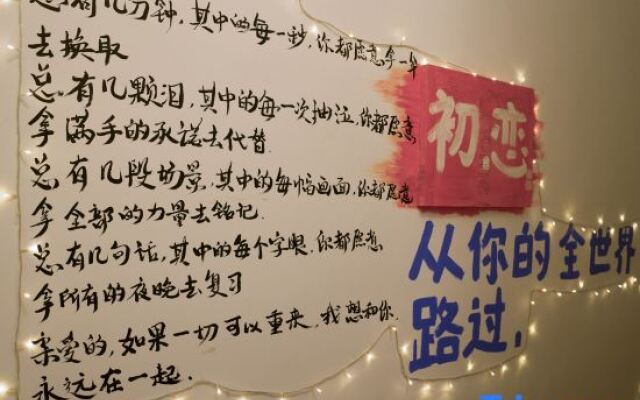 总有几分钟，其中的每一秒，你都愿意拿一年
去换取
总有几颗泪，其中的每一次抽泣，你都愿意
拿满手的承诺去代替.
总有几段场景，其中的每幅画面，你都愿意
拿全部的力量去铭记.
总有几句话，其中的每个字眼，你都愿意
拿所有的夜晚去复习
亲爱的，如果一切可以重来，我想和你.
永远在一起.
初恋
从你的全世界
路过.